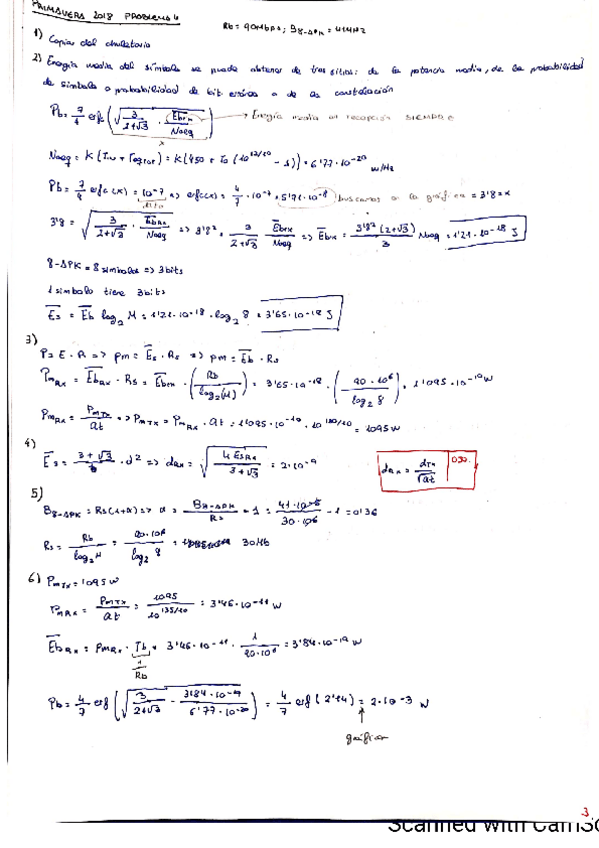 PRIMAVERA 2018 PROBLEMA 4
Rb = 90Mbps; B8-APK = 41MHz
1) Copiar del chuletario
2) Energía media del símbolo se puede obtener de tres sitios: de la potencia media, de la probabilidad
de símbolo o probabilidad de bit errónea o de la constelación
Pb = 7/4 erfc (√(3/(2+√3) · Ebrx/Noeq)) → Energía media en recepción SIEMPRE
x
Noeq = K(Tin + Teqrec) = K(450 + To(10^(12/10) - 1)) = 6'77·10^-20 W/Hz
Pb = 7/4 erfc(x) = 10^-7 => erfc(x) = 4/7 · 10^-7 = 5'71·10^-8 buscamos en la gráfica = 3'8 = x
3'8 = √(3/(2+√3) · Ebrx/Noeq) => 3'8² = 3/(2+√3) Ebrx/Noeq => Ebrx = 3'8²(2+√3)/3 Noeq = 1'21·10^-18 J
8-APK = 8 símbolos => 3 bits
1 símbolo tiene 3 bits
Es = Eb log2 M = 1'21·10^-18 · log2 8 = 3'65·10^-18 J
3)
P = E·R => pm = Es·Rs => pm = Eb·Rs
PmRx = EbRx · Rs = Ebrx · (Rb/log2(M)) = 3'65·10^-18 · (90·10^6/log2 8) = 1'095·10^-10 W
PmRx = PmTx/at => PmTx = PmRx · at = 1'095·10^-10 · 10^(130/10) = 1095 W
4)
Es = (3+√3)/4 · d² => dRx = √(4 EsRx/(3+√3)) = 2·10^-9
dRx = dTx/√at
5)
B8-APK = Rs(1+α) => α = B8-APK/Rs - 1 = 41·10^6/30·10^6 - 1 = 0'36
Rs = Rb/log2 M = 90·10^6/log2 8 = 30Mb
6) PmTx = 1095 W
PmRx = PmTx/at = 1095/10^(135/10) = 3'46·10^-11 W
EbRx = PmRx · Tb = 3'46·10^-11 · 1/90·10^6 = 3'84·10^-19 W
1/Rb
Pb = 4/7 erf (√(3/(2+√3) · 3'84·10^-19/6'77·10^-20)) = 4/7 erf(2'14) = 2·10^-3 W
gráfica
3
Scanned with CamSc